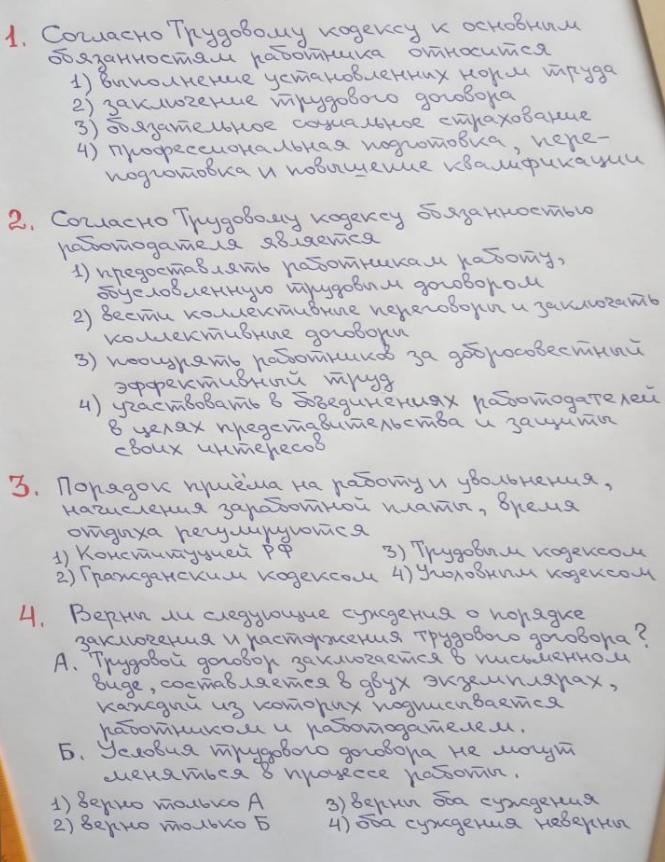 1. Согласно Трудовому кодексу к основным
обязанностям работника относится
1) выполнение установленных норм труда
2) заключение трудового договора
3) обязательное социальное страхование
4) профессиональная подготовка, пере-
подготовка и повышение квалификации
2. Согласно Трудовому кодексу обязанностью
работодателя является
1) предоставлять работникам работу,
обусловленную трудовым договором
2) вести коллективные переговоры и заключать
коллективные договоры
3) поощрять работников за добросовестный
эффективный труд
4) участвовать в объединениях работодателей
в целях представительства и защиты
своих интересов
3. Порядок приёма на работу и увольнения,
начисления заработной платы, время
отдыха регулируются
1) Конституцией РФ 3) Трудовым кодексом
2) Гражданским кодексом 4) Уголовным кодексом
4. Верны ли следующие суждения о порядке
заключения и расторжения трудового договора?
А. Трудовой договор заключается в письменном
виде, составляется в двух экземплярах,
каждый из которых подписывается
работником и работодателем.
Б. Условия трудового договора не могут
меняться в процессе работы.
1) верно только А 3) верны оба суждения
2) верно только Б 4) оба суждения неверны